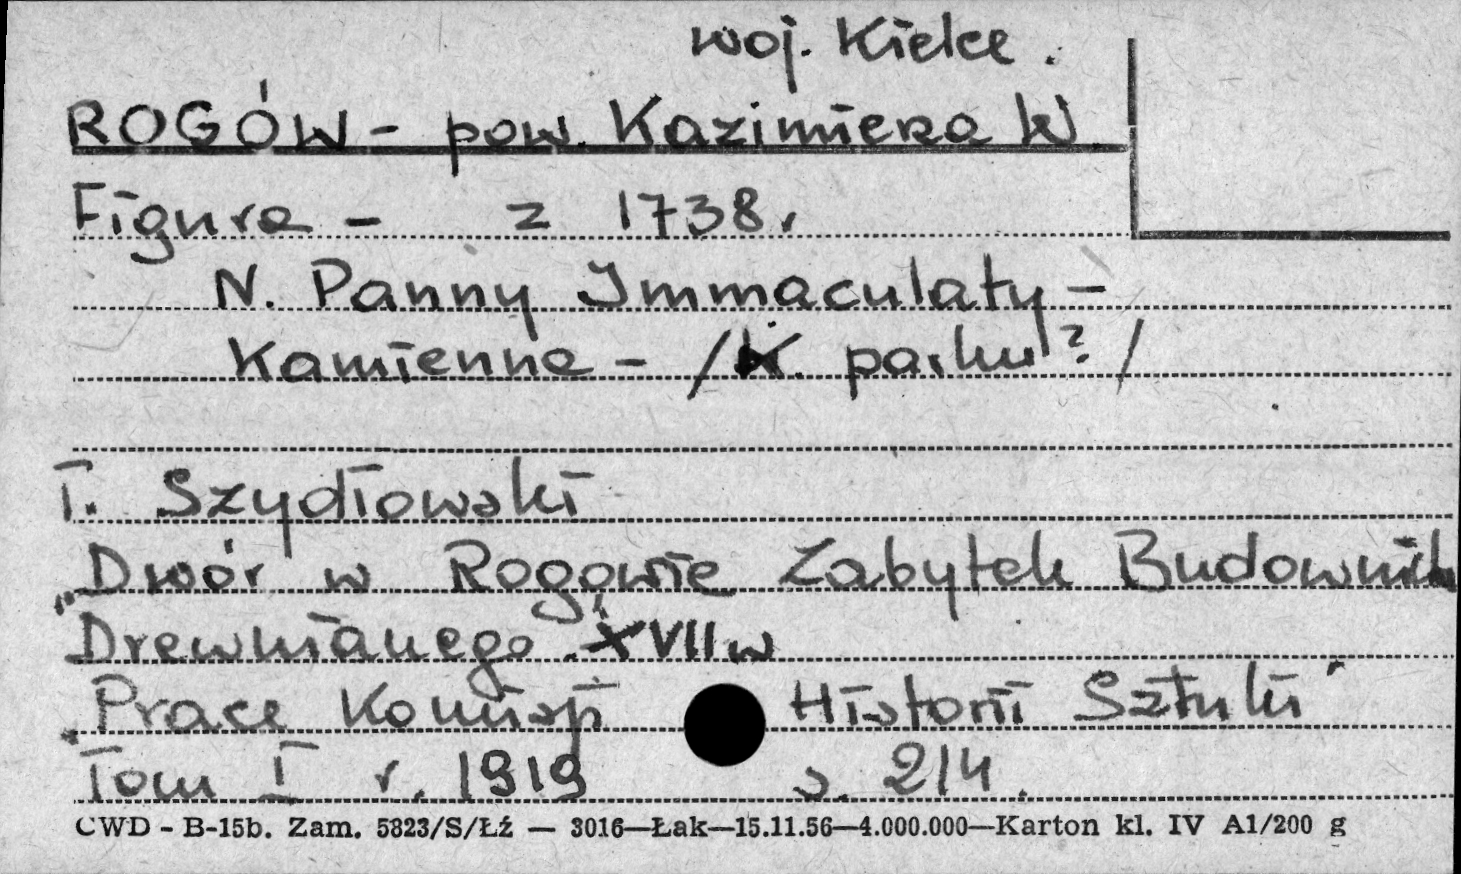 woj. Kielce.
ROGÓW - pow. Kazimiera W.
Figura - z 1738.
N. Panny Immaculaty -
Kamienna - /K. parku? /
T. Szydłowski
„Dwór w Rogowie Zabytek Budownict
Drewnianego XVII w"
„Prace Komisji Historii Sztuki"
Tom I r. 1919 s. 214.
CWD - B-15b. Zam. 5823/S/Łź — 3016—Łak—15.11.56—4.000.000—Karton kl. IV A1/200 g